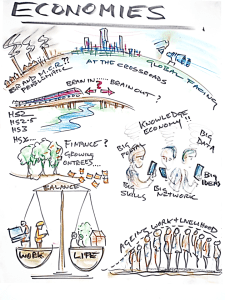 ECONOMIES
AT THE CROSSROADS
GLOBAL FACING
BRAIN IN..... BRAIN OUT?
HS2
HS2.5
HS3
KNOWLEDGE
ECONOMY!!
FINANCE?
GROWING
ON TREES....
BIG
DATA
BIG
SKILLS
BIG
NETWORK
BIG
IDEAS
BALANCE
WORK
LIFE
AGEING WORK & LIVELIHOOD